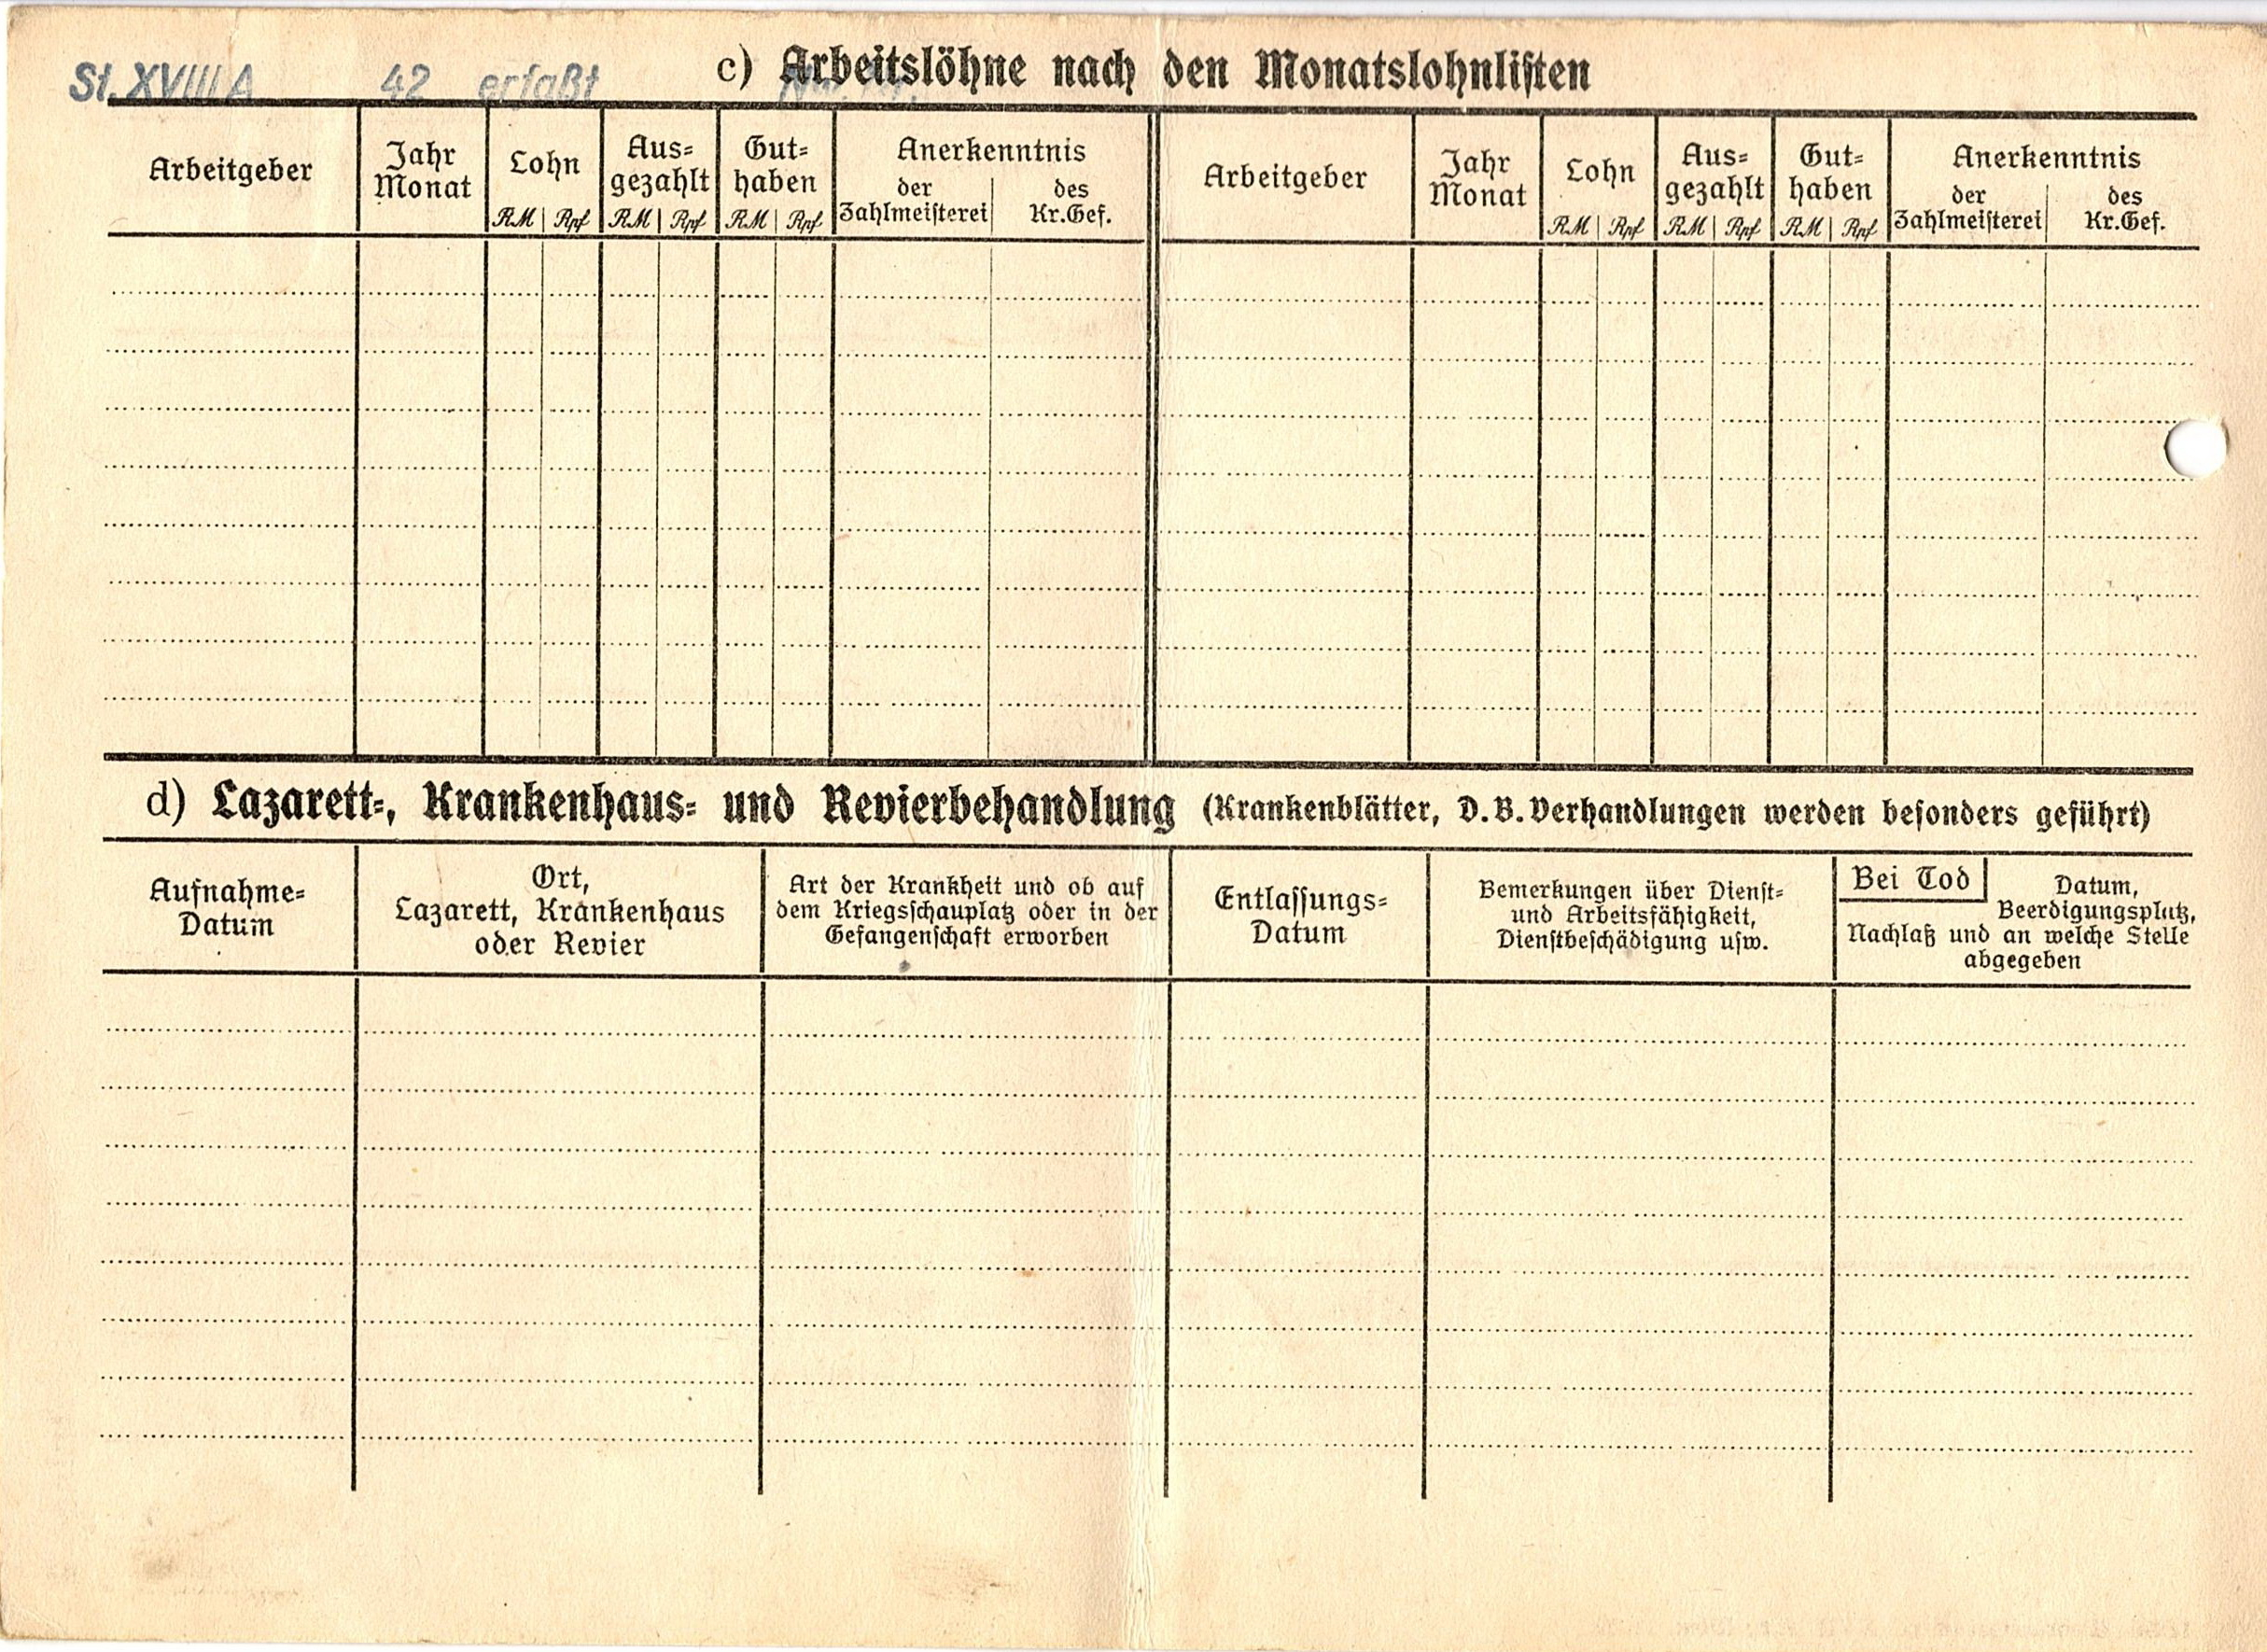 St. XVIII A 42 erfaßt
c) Arbeitslöhne nach den Monatslohnlisten
Arbeitgeber
Jahr
Monat
Lohn
RM Rpf
Aus-
gezahlt
RM Rpf
Gut-
haben
RM Rpf
Anerkenntnis
der
Zahlmeisterei
des
Kr.Gef.
Arbeitgeber
Jahr
Monat
Lohn
RM Rpf
Aus-
gezahlt
RM Rpf
Gut-
haben
RM Rpf
Anerkenntnis
der
Zahlmeisterei
des
Kr.Gef.
d) Lazarett-, Krankenhaus- und Revierbehandlung (Krankenblätter, D.B. Verhandlungen werden besonders geführt)
Aufnahme-
Datum
Ort,
Lazarett, Krankenhaus
oder Revier
Art der Krankheit und ob auf
dem Kriegsschauplatz oder in der
Gefangenschaft erworben
Entlassungs-
Datum
Bemerkungen über Dienst-
und Arbeitsfähigkeit,
Dienstbeschädigung usw.
Bei Tod Datum,
Beerdigungsplatz,
Nachlaß und an welche Stelle
abgegeben